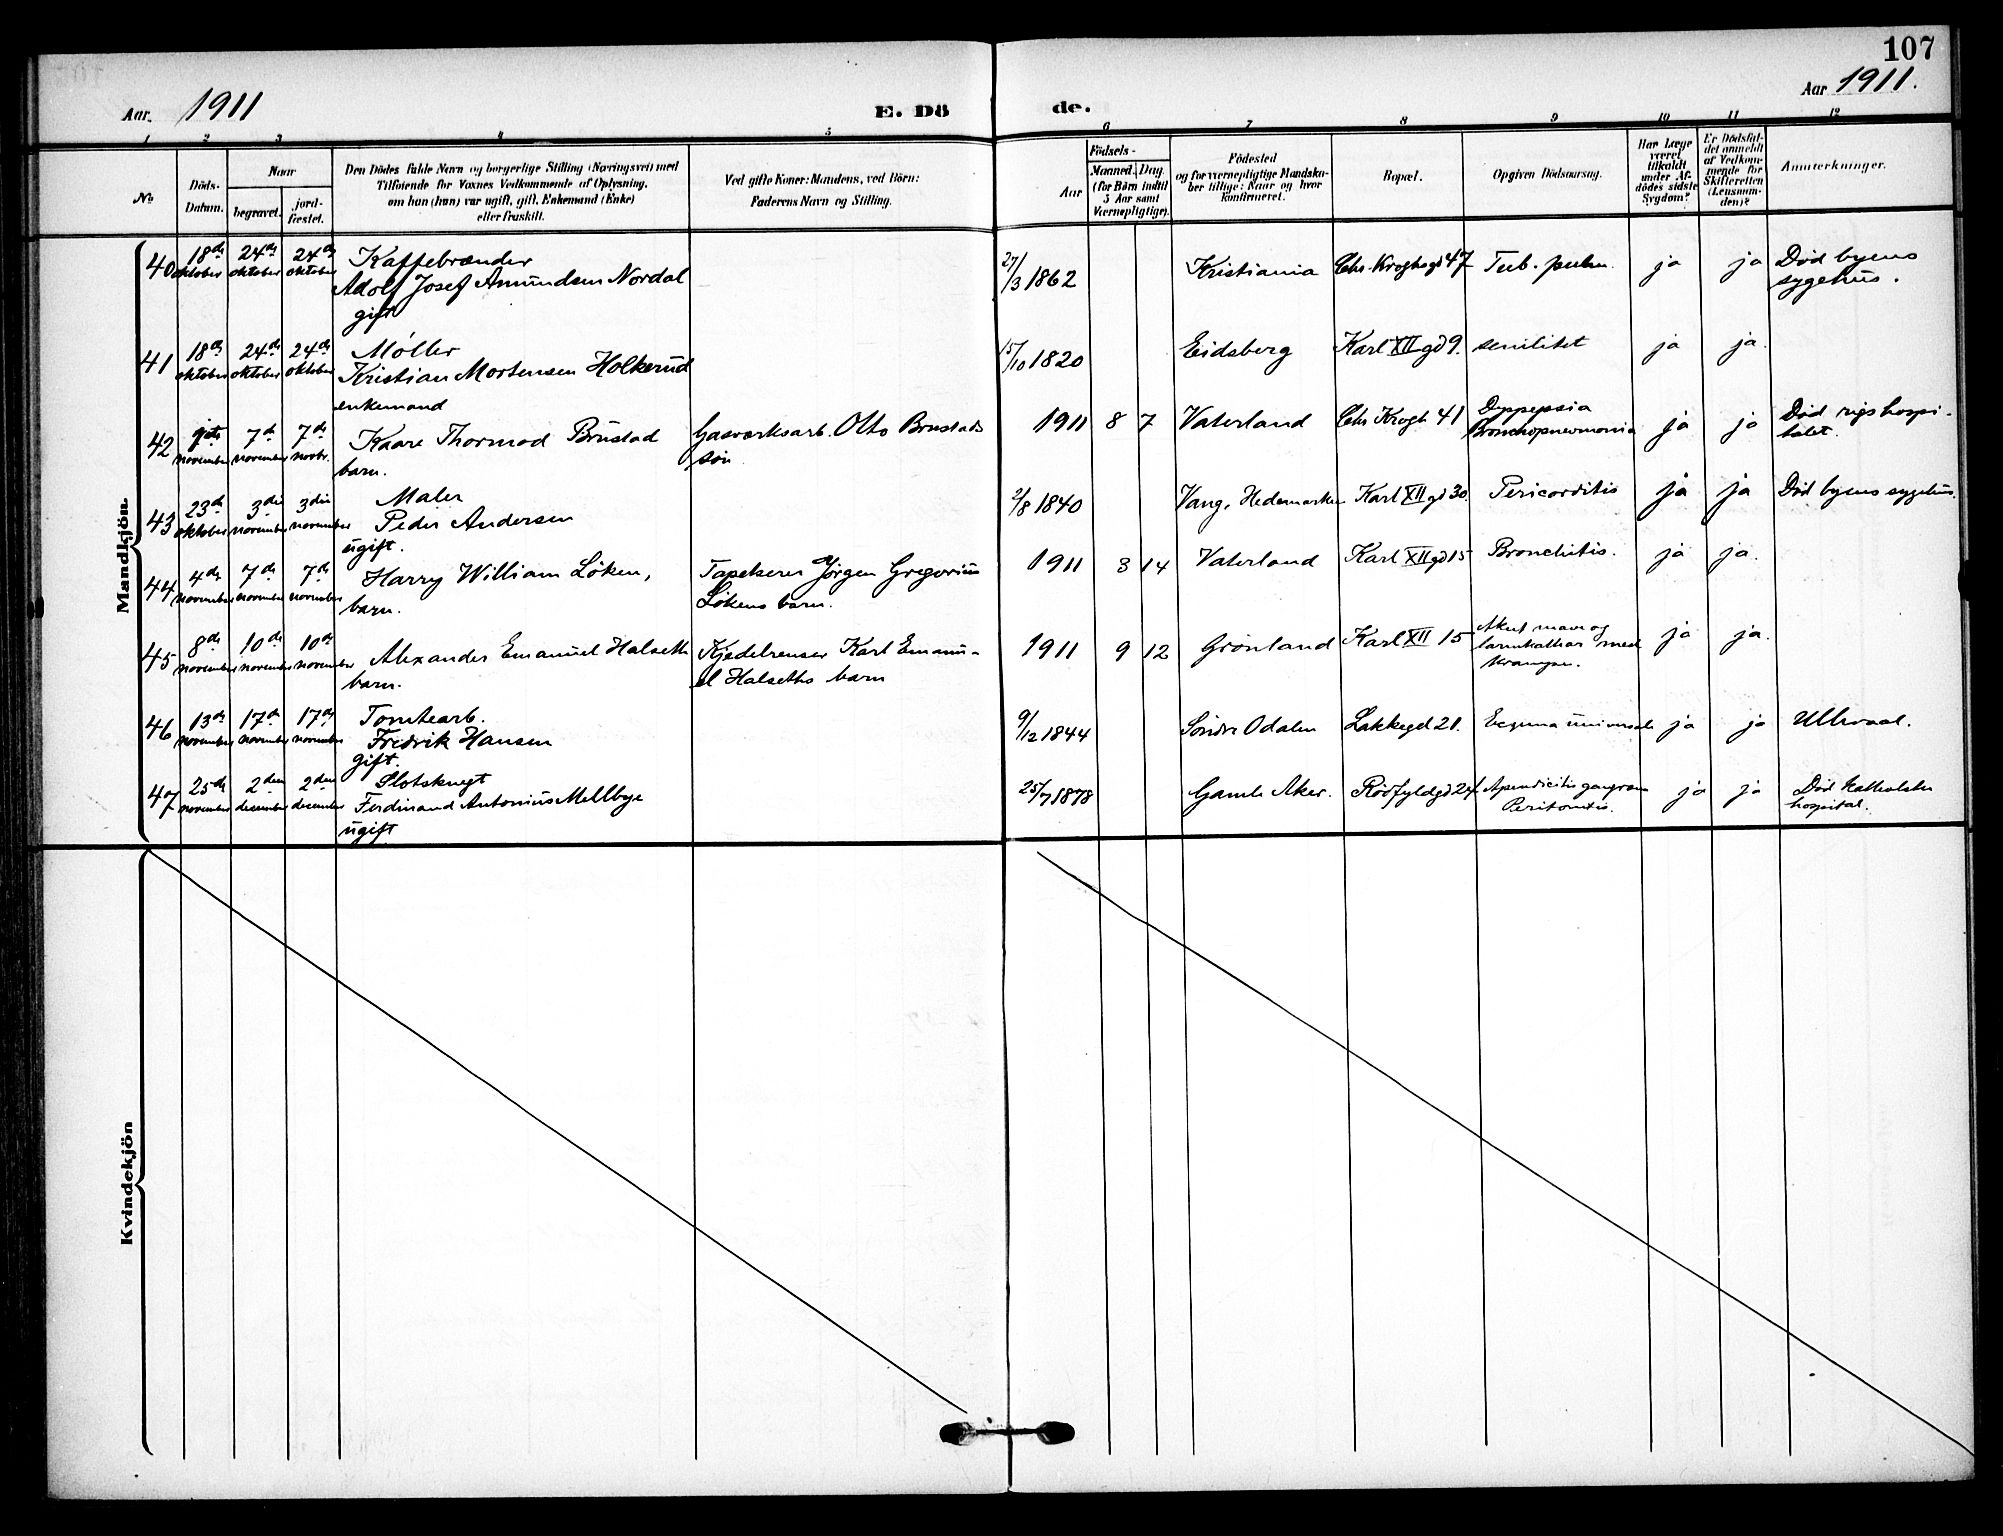 107
Aar 1911.
Aar. 1911
E. Dö
de.
1 2 3 4 5
6 7 8 9 10 11 12
No
Döds-
Datum.
Naar
begravet.
jord-
fæstet.
Den Dödes fulde Navn og borgerlige Stilling (Næringsvei) med
Tilföiende for Voxnes Vedkommende af Oplysning,
om han (hun) var ugift, gift, Enkemand (Enke)
eller fraskilt.
Ved gifte Koner: Mandens, ved Börn:
Faderens Navn og Stilling.
Födsels-
Aar
Maaned. Dag.
(for Børn indtil
5 Aar samt
Værnepligtige).
Födested
og for værnepligtige Mandska-
ber tillige: Naar og hvor
konfirmeret.
Bopæl.
Opgiven Dödsaarsag.
Har Læge
været
tilkaldt
under Af-
dödes sidste
Sygdom?
Er Dödsfal-
det anmeldt
af Vedkom-
mende for
Skifteretten
(Lensman-
den)?
Anmærkninger.
Mandkjön.
40 18de oktober 24de oktober 24de oktober
Kaffebrænder
Adolf Josef Amundsen Nordal
gift
27/3 1862 Kristiania Chr. Kroghsgd 47 Tub. pulm. ja ja Död byens
sygehus.
41 18de oktober 24de oktober 24de oktober
Møller
Kristian Mortensen Holkerud
enkemand
15/10 1820 Eidsberg Karl XII gd 9. senilitet ja ja.
42 november 7de november 7de novbr.
Kaare Thormod Brustad
barn.
Gasværksarb. Otto Brustads
søn
1911 8 7 Vaterland Chr Krogh 41 Dyspepsia
Bronchopneumonia ja ja Död rigshospi-
talet.
43 23de oktober 3die november 3die november
Maler
Peder Andersen
ugift.
2/8 1840 Vang, Hedemarken Karl XII gd 30. Pericarditis ja ja Död byens sygehus.
44 4de november 7de november 7de november
Harry William Löken,
barn.
Tapetserer Jörgen Gregorius
Lökens barn.
1911 3 14 Vaterland Karl XII gd 15 Bronchitis. ja ja.
45 8de november 10de november 10de november
Alexander Emanuel Halseth
barn.
Kjedelrenser Karl Emanu-
el Halseths barn
1911 9 12 Grönland Karl XII 15 Akut mave og
tarmkathar med
kramper. ja ja.
46 13de november 17de november 17de november
Tomtearb.
Fredrik Hansen
gift.
9/12 1844 Söndre Odalen Lakkegd 21. universale ja ja Ullevaal.
47 25de november 2den december 2den december
Slotsknegt
Ferdinand Antonius Mellbye
ugift
25/7 1878 Gamle Aker. Rödfyldgd 24. Apendicitis gangræn
Peritonitis. ja ja Död Katholske
hospital.
Kvindekjön